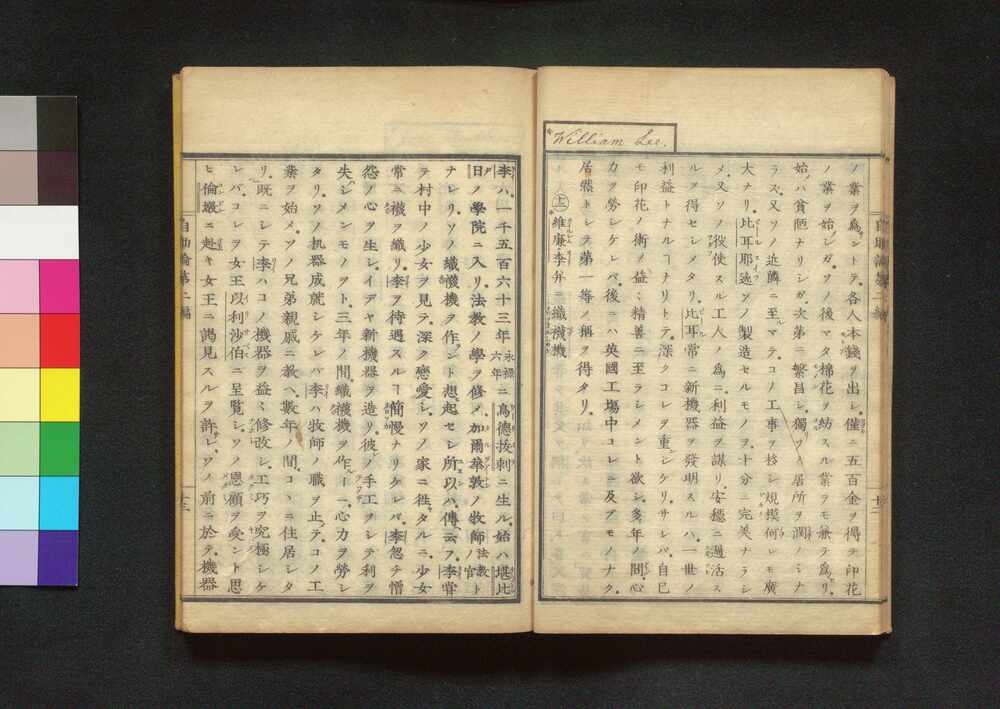 William Lee.
ノ業ヲ為シトテ、各人本錢ヲ出シ、僅ニ五百金ヲ得テ印花
ノ業ヲ始シガ、ソノ後マタ棉花ヲ紡スル業ヲモ兼テ為リ、
始ハ貧陋ナリシガ、次第ニ繁昌シ、獨ソノ居所ヲ潤ノミナ
ラズ、又ソノ近隣ニ至マデ、コノ工事ヲ扮シ、規模何レモ廣
大ナリ、比耳耶逸ソノ製造セルモノヲ、十分ニ完美ナラシ
メ、又ソノ役使スル工人ノ為ニ利益ヲ謀リ、安穩ニ過活ス
ルヲ得セシメタリ、比耳常ニ新機器ヲ發明スルハ、一世ノ
利益トナルヿナリトテ、深クコレヲ重シケリ、サレバ、自己
モ印花ノ術ノ益〻精善ニ至ラシメント欲シ、多年ノ間、心
力ヲ勞シケレバ、後ニハ英國工塲中コレニ及ブモノナク、
居然トシテ第一等ノ稱ヲ得タリ、
維廉李并ニ織襪機
李ハ、一千五百六十三年永禄六年ニ烏德按刺ニ生ル、始ハ堪比
日ノ學院ニ入リ、法教ノ學ヲ修メ、加爾華敦ノ牧師法教ノ官ト
ナレリ、ソノ織襪機ヲ作ント想起セシ所以ハ、傳云フ、李嘗
テ村中ノ少女ヲ見テ、深ク戀愛シ、ソノ家ニ徃タルニ、少女
常ニ襪ヲ織リ、李ヲ待遇スルヿ簡慢ナリケレバ、李忽チ憎
怨ノ心ヲ生シ、イデヤ新機器ヲ造リ、彼ノ手工ヲシテ利ヲ
失シメンモノヲト、三年ノ間、織襪機ヲ作ルヿニ、心力ヲ勞シ
タリ、ソノ机器成就シケレバ、李ハ牧師ノ職ヲ止テ、コノ工
業ヲ始メ、ソノ兄弟親戚ニ教ヘ、數年ノ間、コヽニ住居シタ
リ、既ニシテ李ハコノ機器ヲ益〻修改シ、工巧ヲ究極シケ
レバ、コレヲ女王以利沙伯ニ呈覧シ、ソノ恩顧ヲ受ント思
ヒ、倫墩ニ赴キ女王ニ謁見スルヲ許レ、ソノ前ニ於テ機器
自助論第二編
十三